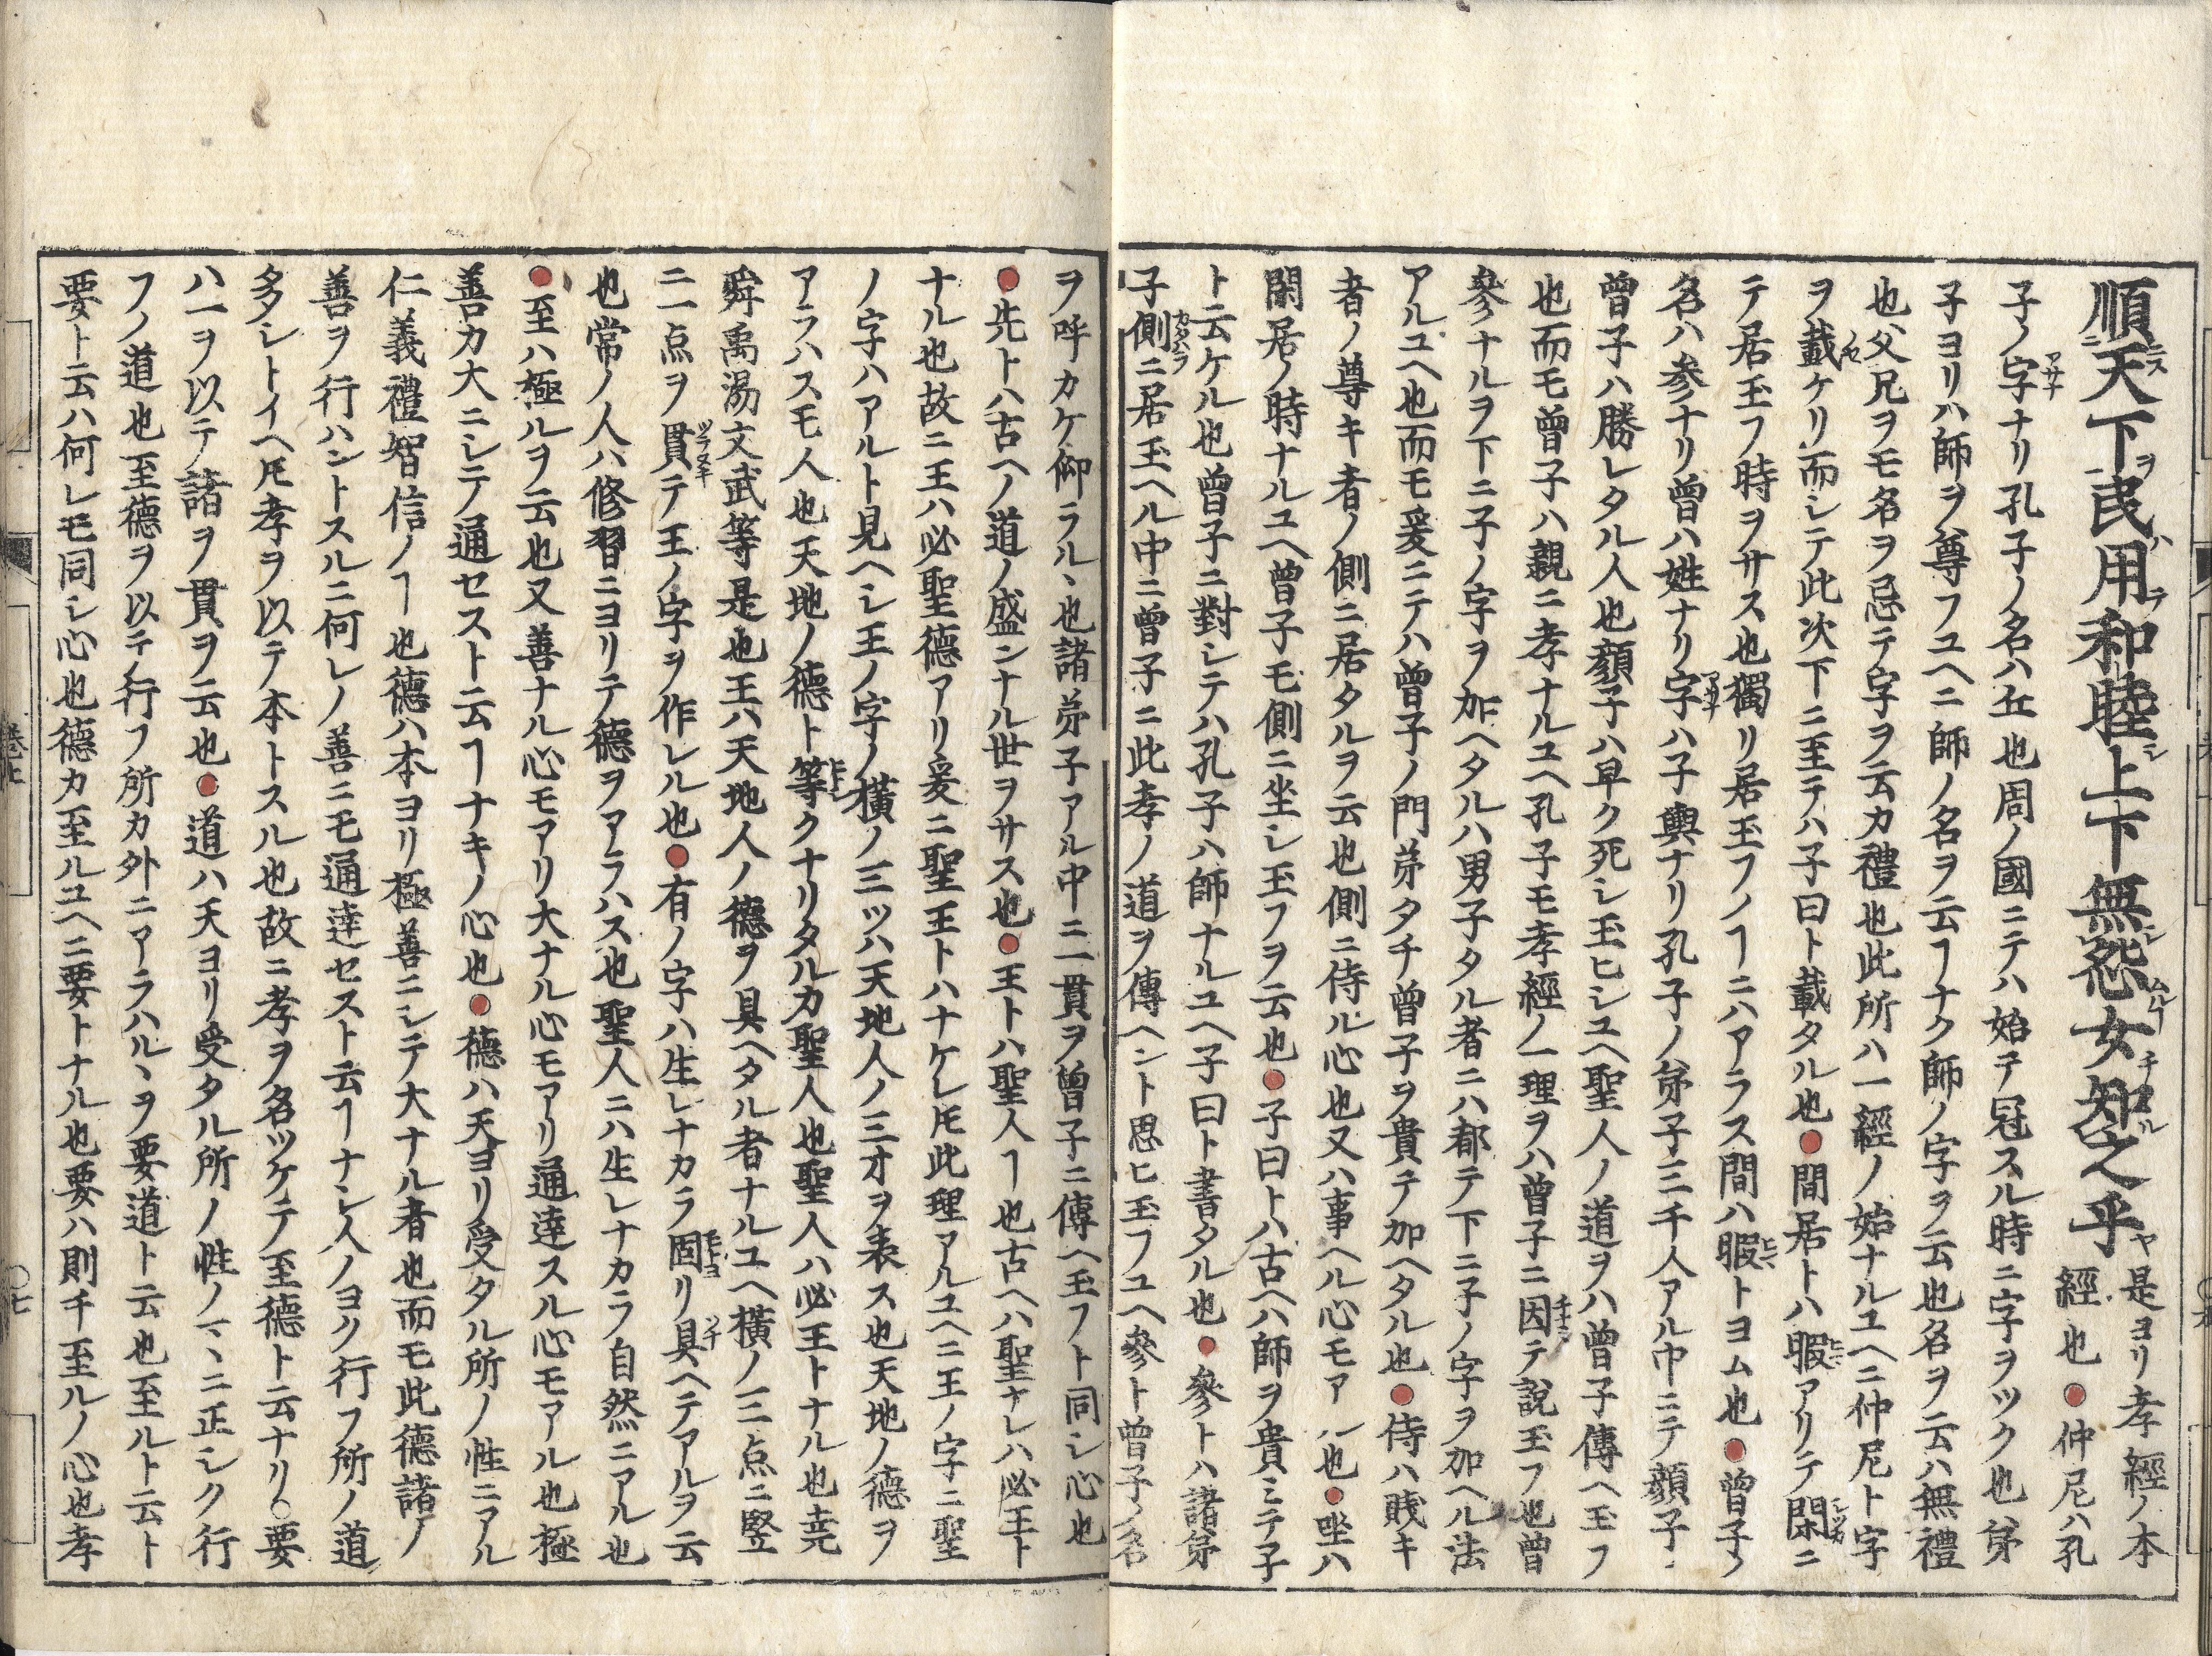 順天下民用和睦上下無怨女知之乎 是ヨリ孝經ノ本
經也●仲尼ハ孔
子ノ字ナリ孔子ノ名ハ丘也周ノ國ニテハ始テ冠スル時ニ字ヲツク也弟
子ヨリハ師ヲ尊フユヘニ師ノ名ヲ云ヿナク師ノ字ヲ云也名ヲ云ハ無禮
也父兄ヲモ名ヲ忌テ字ヲ云カ禮也此所ハ一經ノ始ナルユヘニ仲尼ト字
ヲ載ケリ而シテ此次下ニ至テハ子曰ト載タル也●間居トハ暇アリテ閑ニ
テ居玉フ時ヲサス也獨リ居玉フノヿニハアラス間ハ暇トヨム也●曾子ノ
名ハ参ナリ曾ハ姓ナリ字ハ子輿ナリ孔子ノ弟子三千人アル中ニテ顔子
曾子ハ勝レタル人也顔子ハ早ク死シ玉ヒシユヘ聖人ノ道ヲハ曾子傳ヘ玉フ
也而モ曾子ハ親ニ孝ナルユヘ孔子モ孝經ノ一理ヲハ曾子ニ因テ說玉フ也曾
參ナルヲ下ニ子ノ字ヲ加ヘタルハ男子タル者ニハ都テ下ニ子ノ字ヲ加ヘル法
アルユヘ也而モ爰ニテハ曾子ノ門弟タチ曾子ヲ貴テ加ヘタル也●侍ハ賎キ
者ノ尊キ者ノ側ニ居タルヲ云也側ニ侍ル心也又ハ事ヘル心モアル也●坐ハ
閑居ノ時ナルユヘ曾子モ側ニ坐シ玉フヲ云也●子曰トハ古ヘハ師ヲ貴ミテ子
ト云ケル也曾子ニ對シテハ孔子ハ師ナルユヘ子曰ト書タル也●參トハ諸弟
子側ニ居玉ヘル中ニ曾子ニ此孝ノ道ヲ傳ヘント思ヒ玉フユヘ參ト曾子ノ名
ヲ呼カケ仰ラルヽ也諸弟子アル中ニ一貫ヲ曾子ニ傳ヘ玉フト同シ心也
●先トハ古ヘノ道ノ盛ンナル世ヲサス也●王トハ聖人ヿ也古ヘハ聖ナレハ必王ト
ナル也故ニ王ハ必聖德アリ爰ニ聖王トハナケレ𪜈此理アルユヘニ王ノ字ニ聖
ノ字ハアルト見ヘシ王ノ字ノ橫ノ三ツハ天地人ノ三才ヲ表ス也天地ノ德ヲ
アラハスモ人也天地ノ德ト等クナリタルカ聖人也聖人ハ必王トナル也堯
舜禹湯文武等是也王ハ天地人ノ德ヲ具ヘタル者ナルユヘ橫ノ三点ニ竪
ニ一点ヲ貫テ王ノ字ヲ作レル也●有ノ字ハ生レナカラ固リ具ヘテアルヲ云
也常ノ人ハ修習ニヨリテ德ヲアラハス也聖人ニハ生レナカラ自然ニアル也
●至ハ極ルヲ云也又善ナル心モアリ大ナル心モアリ通達スル心モアル也極
善カ大ニシテ通セスト云ヿナキノ心也●德ハ天ヨリ受タル所ノ性ニアル
仁義禮智信ノヿ也德ハ本ヨリ極善ニシテ大ナル者也而モ此德諸ノ
善ヲ行ハントスルニ何レノ善ニモ通達セスト云ヿナシ人ノヨク行フ所ノ道
多シトイヘ𪜈孝ヲ以テ本トスル也故ニ孝ヲ名ツケテ至德ト云ナリ○要
ハ一ヲ以テ諸ヲ貫ヲ云也●道ハ天ヨリ受タル所ノ性ノマヽニ正シク行
フノ道也至德ヲ以テ行フ所カ外ニアラハルヽヲ要道ト云也至ルト云ト
要ト云ハ何レモ同シ心也德カ至ルユヘニ要トナル也要ハ則チ至ルノ心也孝